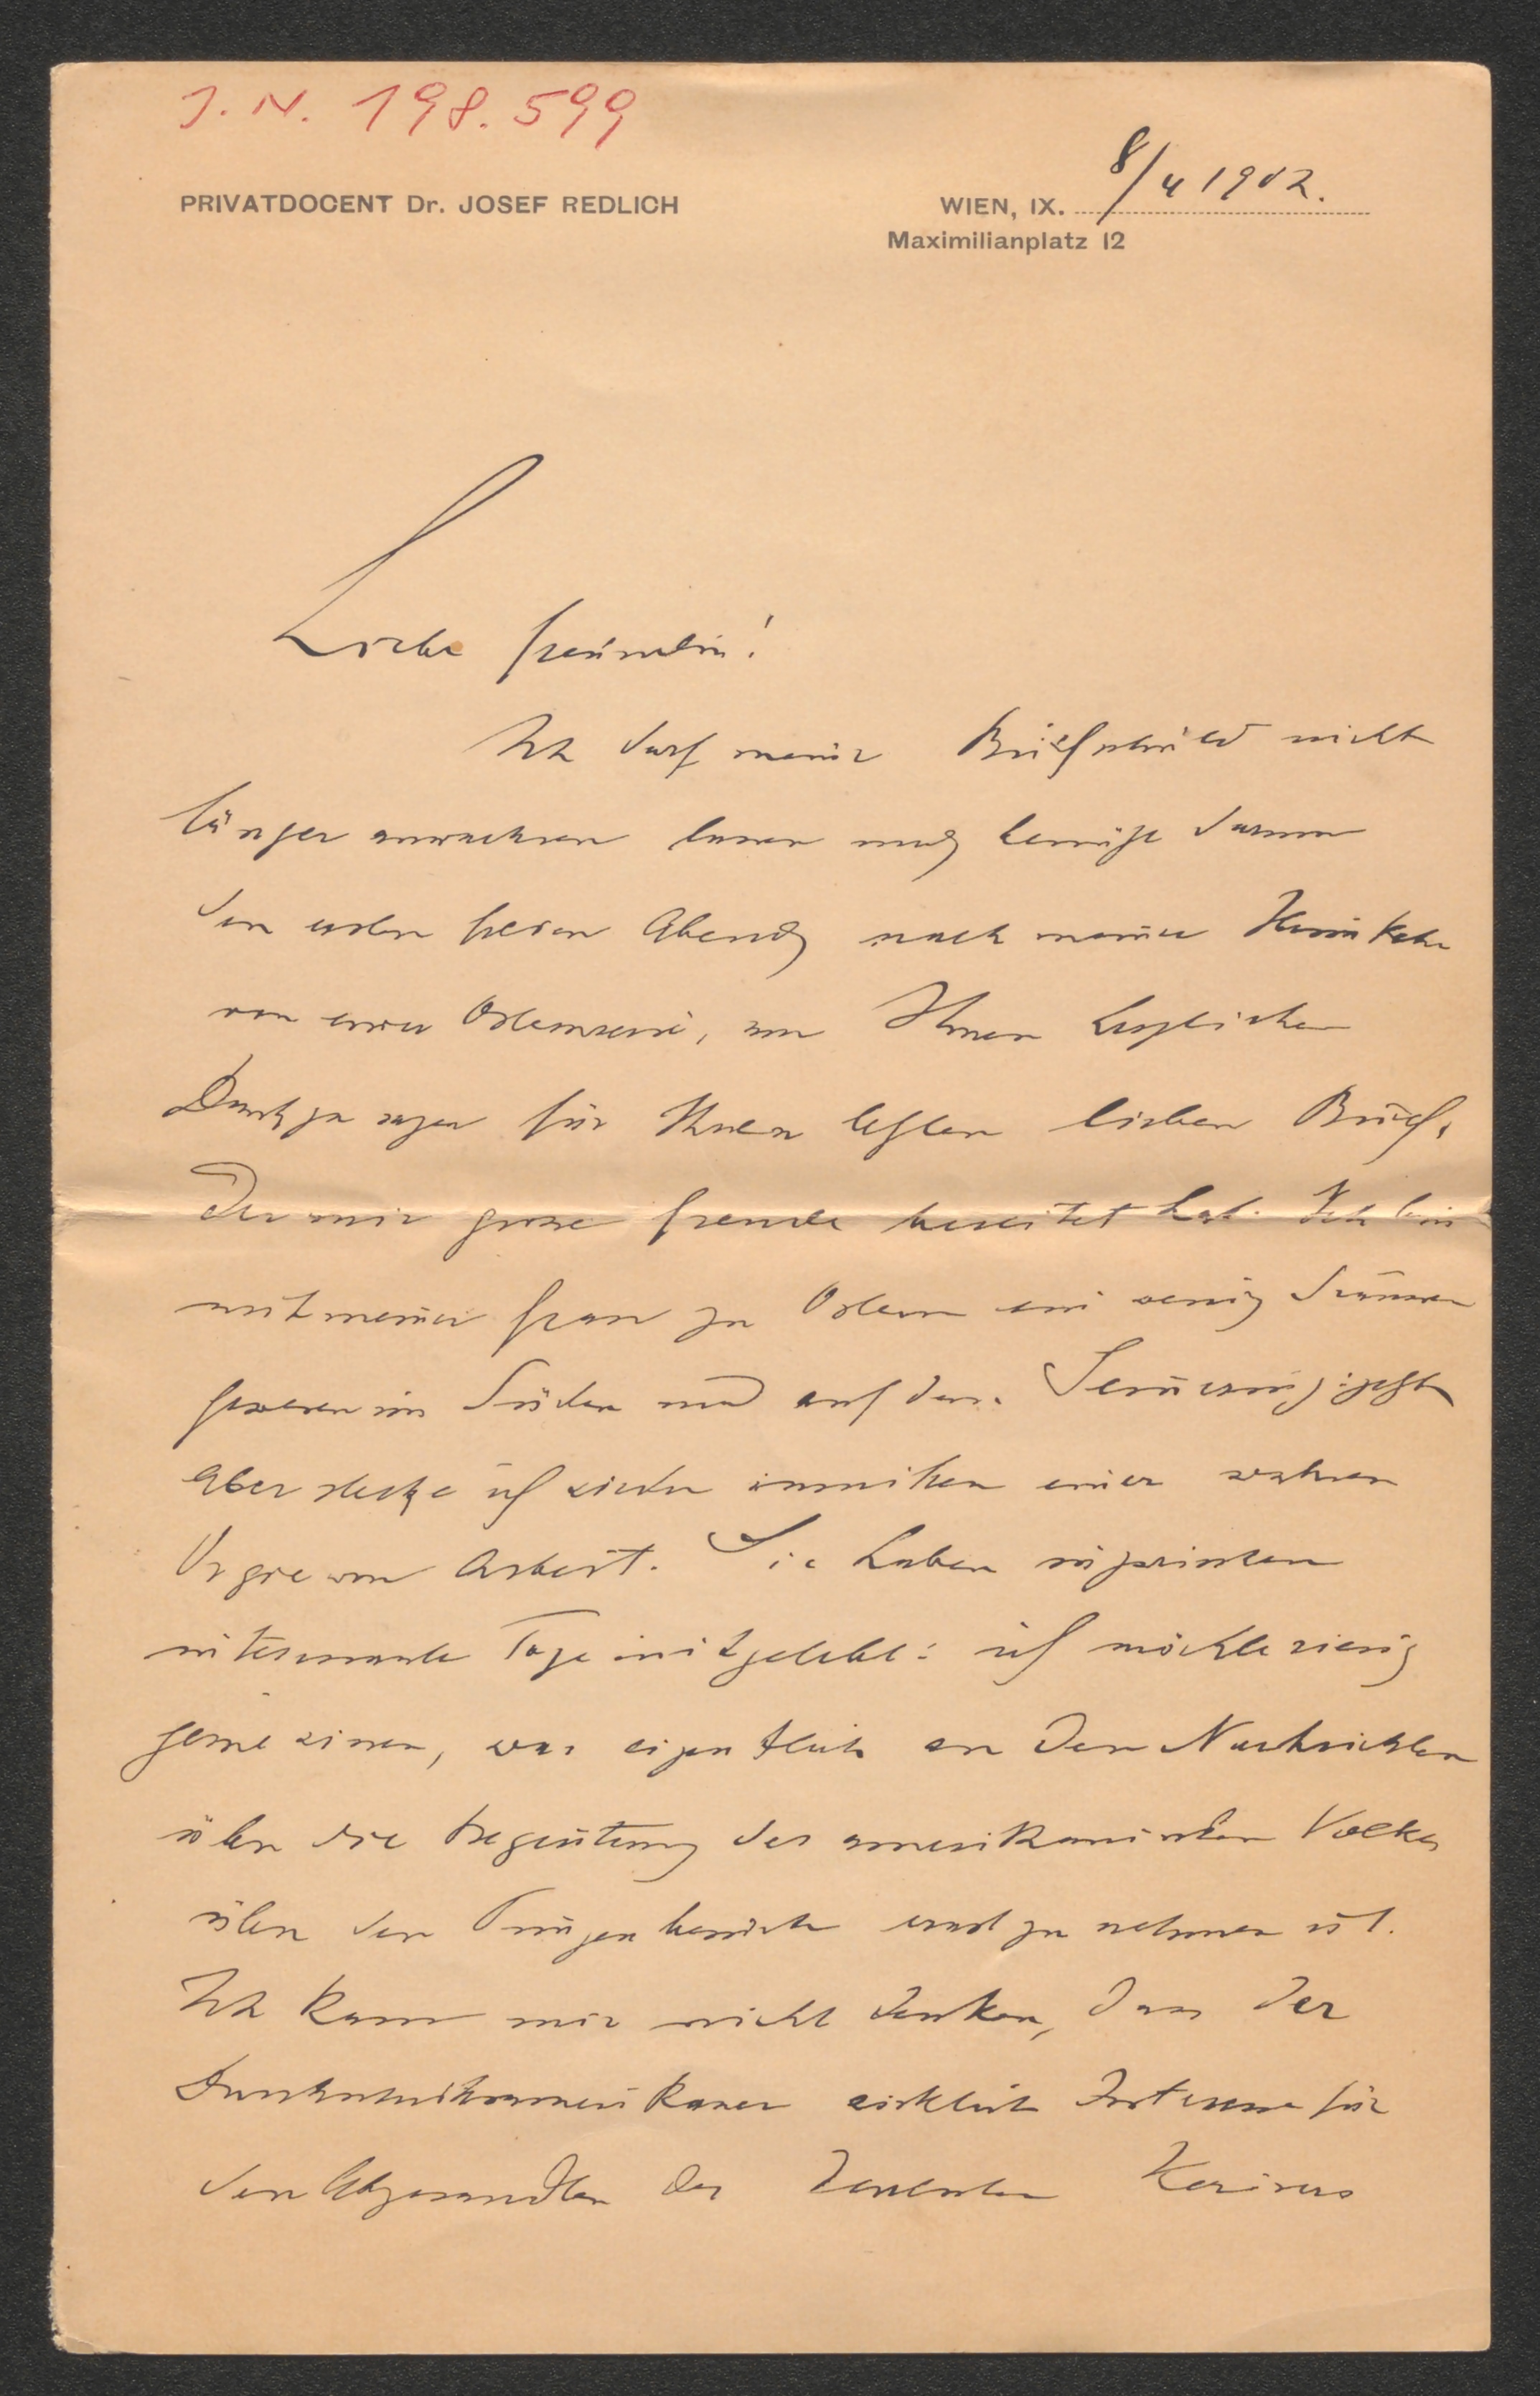 J. N. 198.599
PRIVATDOCENT Dr. JOSEF REDLICH
WIEN, IX. 8/4 1902.
Maximilianplatz 12
Liebe Freundin!
Ich darf meine Briefschuld nicht
länger anwachsen lassen und benütze darum
den ersten freien Abend nach meiner Heimkehr
von einer Osterreise, um Ihnen herzlichen
Dank zu sagen für Ihren letzten lieben Brief,
der mir grosse Freude bereitet hat. Ich bin
mit meiner Frau zu Ostern ein wenig
gewesen im Süden und auf dem Semmering: jetzt
aber stecke ich wieder inmitten einer wahren
Orgie von Arbeit. Sie haben inzwischen
interessante Tage mitgelebt: ich möchte riesig
gerne wissen, was eigentlich an den Nachrichten
über die Begeisterung des amerikanischen Volkes
über den Prinzenbesuch ernst zu nehmen ist.
Ich kann mir nicht denken, dass der
Durchschnittsamerikaner wirklich Interesse für
den Abgesandten des deutschen Kaisers